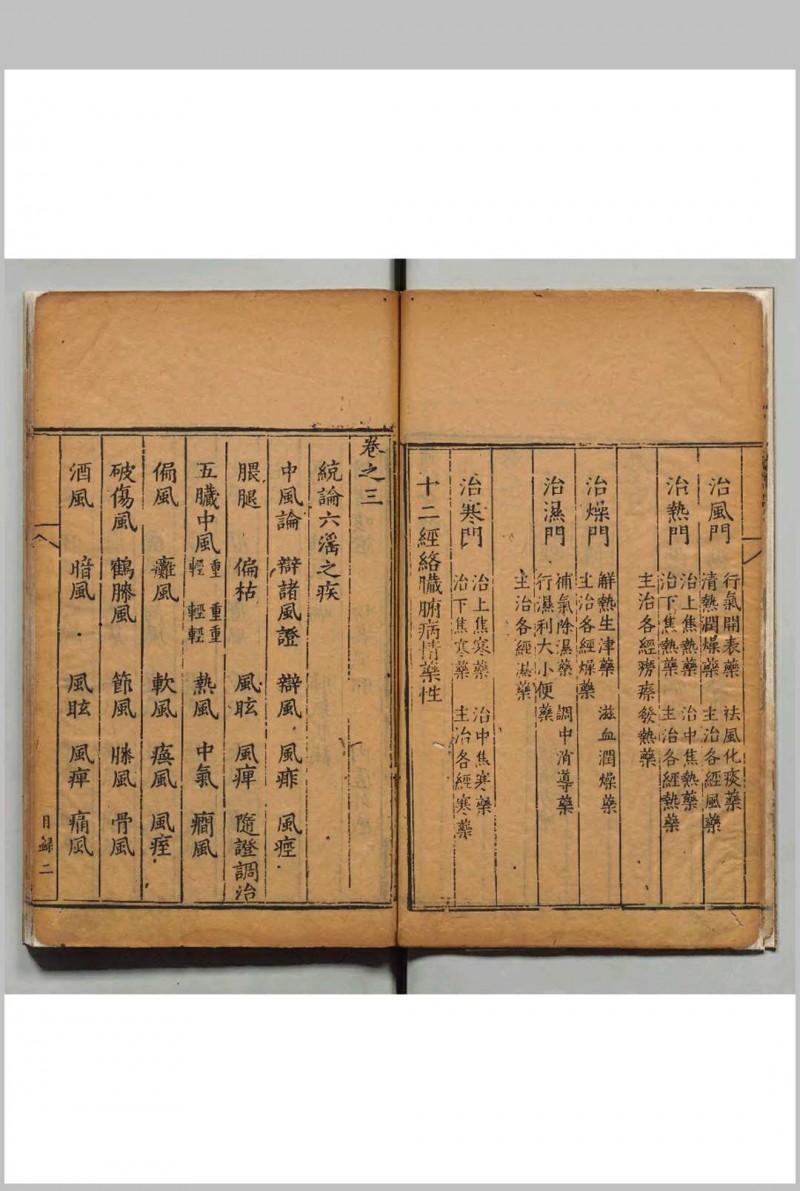 治風門 行氣開表藥 祛風化痰藥
清熱潤燥藥 主治各經風藥
治熱門 治上焦熱藥 治中焦熱藥
治下焦熱藥 主治各經熱藥
主治各經勞瘵發熱藥
治燥門 解熱生津藥 滋血潤燥藥
主治各經燥藥
治濕門 補氣除濕藥 調中消導藥
行濕利大小便藥
主治各經濕藥
治寒門 治上焦寒藥 治中焦寒藥
治下焦寒藥 主治各經寒藥
十二經絡臟腑病情藥性
卷之三
統論六淫之疾
中風論 辯諸風證 辯風 風痱 風痙
腲腿 偏枯 風眩 風痺 隨證調治
五臟中風 重 輕 重重 輕輕 熱風 中氣 癇風
偏風 癱風 軟風 瘓風 風痙
破傷風 鶴膝風 節風 膝風 骨風
酒風 暗風 風眩 風痺 痛風
目錄 二